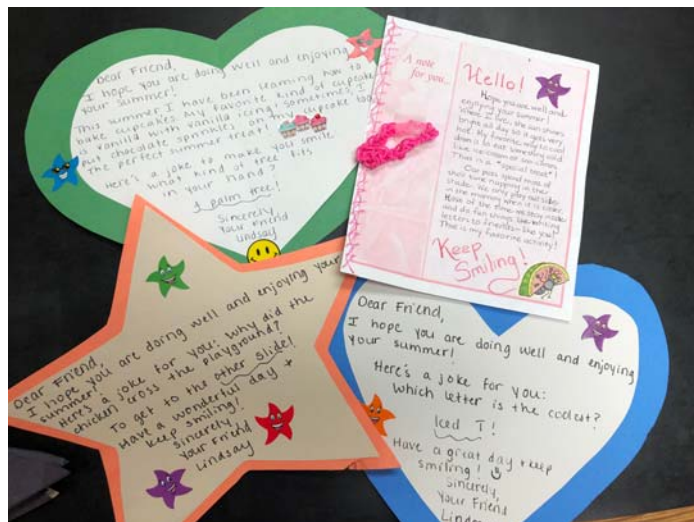 Dear Friend,
I hope you are doing well and enjoying
your summer!
This summer I have been learning how to
bake cupcakes. My favorite kind of cupcake
is vanilla with vanilla icing! Sometimes, I
put chocolate sprinkles on my cupcake too.
The perfect summer treat!
Here's a joke to make you smile
what kind of tree fits
in your hand?
A palm tree!
Sincerely
Your Friend
Lindsay
A note
for you...
Hello!
Hope you are well and
enjoying your summer!
Where I live, the sun shines
bright all day so it gets very
hot. My favorite way to cool
down is to eat something cold
like ice cream or
This is a "special treat"!
Our pets spend most of
their time napping in the
shade. We only play outside
in the morning when it is cooler.
Most of the time we stay inside
and do fun things like writing
letters to friends like you!
That is my favorite activity!
Keep
Smiling!
Dear Friend,
I hope you are doing well and enjoying your
summer!
Here's a joke for you: Why did the
chicken cross the playground?
To get to the other slide!
Have a wonderful day +
keep smiling!
Sincerely
Your Friend
Lindsay
Dear Friend,
I hope you are doing well and enjoying
your summer!
Here's a joke for you:
Which letter is the coolest?
Iced T!
Have a great day + keep
smiling!
Sincerely,
Your Friend